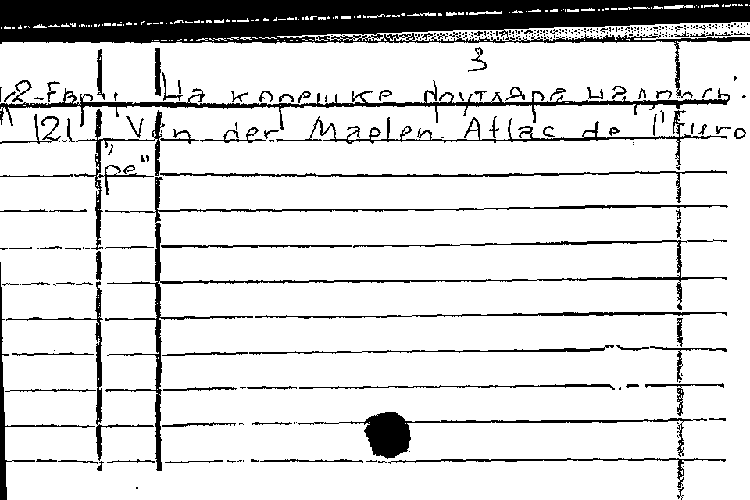 3
К2-Евр/ На корешке футляра надпись:
Л 121 "Van der Maelen. Atlas de l'Euro
pe"